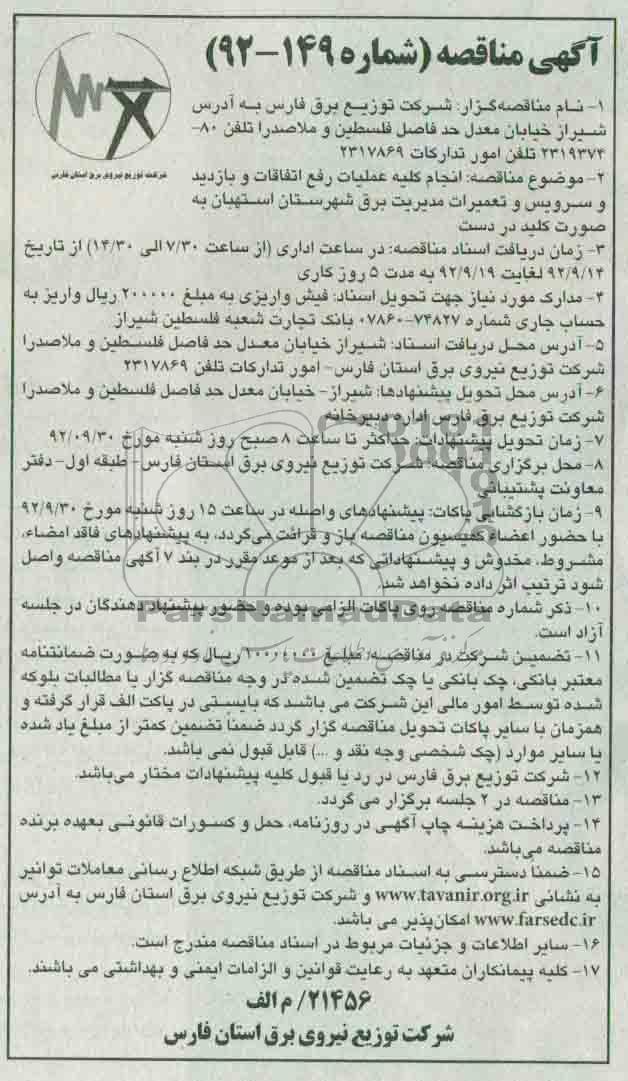 آگهی مناقصه (شماره ۱۴۹-۹۲)
شرکت توزیع نیروی برق استان فارس
۱- نام مناقصه‌گزار: شرکت توزیع برق فارس به آدرس
شیراز خیابان معدل حد فاصل فلسطین و ملاصدرا تلفن ۸۰-
۲۳۱۹۳۷۴ تلفن امور تدارکات ۲۳۱۷۸۶۹
۲- موضوع مناقصه: انجام کلیه عملیات رفع اتفاقات و بازدید
و سرویس و تعمیرات مدیریت برق شهرستان استهبان به
صورت کلید در دست
۳- زمان دریافت اسناد مناقصه: در ساعت اداری (از ساعت ۷/۳۰ الی ۱۴/۳۰) از تاریخ
۹۲/۹/۱۴ لغایت ۹۲/۹/۱۹ به مدت ۵ روز کاری
۴- مدارک مورد نیاز جهت تحویل اسناد: فیش واریزی به مبلغ ۲۰۰۰۰۰ ریال واریز به
حساب جاری شماره ۷۴۸۲۷-۰۷۸۶۰ بانک تجارت شعبه فلسطین شیراز
۵- آدرس محل دریافت اسناد: شیراز خیابان معدل حد فاصل فلسطین و ملاصدرا
شرکت توزیع نیروی برق استان فارس- امور تدارکات تلفن ۲۳۱۷۸۶۹
۶- آدرس محل تحویل پیشنهادها: شیراز- خیابان معدل حد فاصل فلسطین و ملاصدرا
شرکت توزیع برق فارس اداره دبیرخانه
۷- زمان تحویل پیشنهادات: حداکثر تا ساعت ۸ صبح روز شنبه مورخ ۹۲/۰۹/۳۰
۸- محل برگزاری مناقصه: شرکت توزیع نیروی برق استان فارس- طبقه اول- دفتر
معاونت پشتیبانی
۹- زمان بازگشایی پاکات: پیشنهادهای واصله در ساعت ۱۵ روز شنبه مورخ ۹۲/۹/۳۰
با حضور اعضاء کمیسیون مناقصه باز و قرائت می‌گردد، به پیشنهادهای فاقد امضاء،
مشروط، مخدوش و پیشنهاداتی که بعد از موعد مقرر در بند ۷ آگهی مناقصه واصل
شود ترتیب اثر داده نخواهد شد.
۱۰- ذکر شماره مناقصه روی پاکات الزامی بوده و حضور پیشنهاد دهندگان در جلسه
آزاد است.
ParsNamadData
۱۱- تضمین شرکت در مناقصه: مبلغ ریال که به صورت ضمانتنامه
معتبر بانکی، چک بانکی یا چک تضمین شده در وجه مناقصه گزار یا مطالبات بلوکه
شده توسط امور مالی این شرکت می باشد که بایستی در پاکت الف قرار گرفته و
همزمان با سایر پاکات تحویل مناقصه گزار گردد ضمناً تضمین کمتر از مبلغ یاد شده
یا سایر موارد (چک شخصی وجه نقد و ...) قابل قبول نمی باشد.
۱۲- شرکت توزیع برق فارس در رد یا قبول کلیه پیشنهادات مختار می‌باشد.
۱۳- مناقصه در ۲ جلسه برگزار می گردد.
۱۴- پرداخت هزینه چاپ آگهی در روزنامه، حمل و کسورات قانونی بعهده برنده
مناقصه می‌باشد.
۱۵- ضمنا دسترسی به اسناد مناقصه از طریق شبکه اطلاع رسانی معاملات توانیر
به نشانی www.tavanir.org.ir و شرکت توزیع نیروی برق استان فارس به آدرس
www.farsedc.ir امکان‌پذیر می باشد.
۱۶- سایر اطلاعات و جزئیات مربوط در اسناد مناقصه مندرج است.
۱۷- کلیه پیمانکاران متعهد به رعایت قوانین و الزامات ایمنی و بهداشتی می باشند.
۲۱۴۵۶/ م الف
شرکت توزیع نیروی برق استان فارس